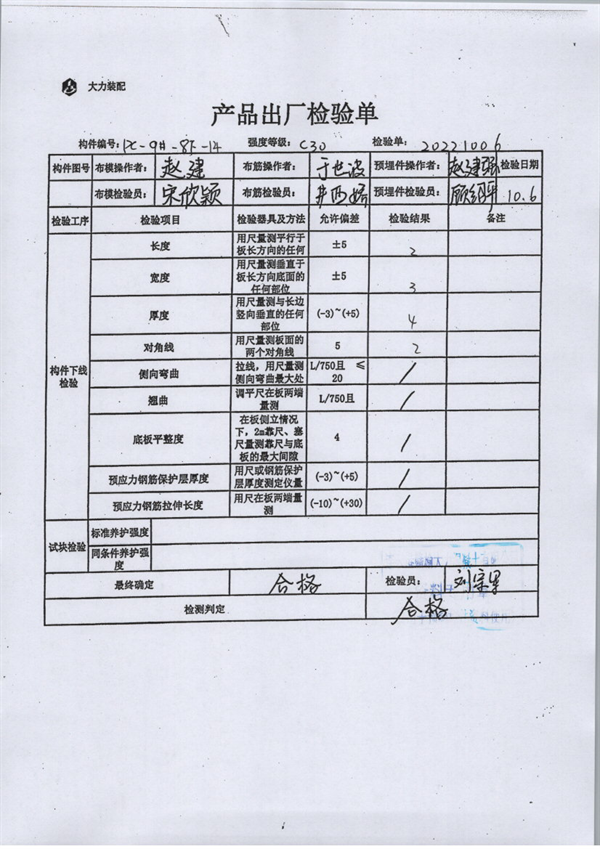 大力装配
产品出厂检验单
构件编号: PC-9#-8F-14 强度等级: C30 检验单: 20221006
构件图号 布模操作者: 赵建 布筋操作者: 于世波 预埋件操作者: 赵建强 检验日期
布模检验员: 宋欣颖 布筋检验员: 预埋件检验员: 10.6
检验工序 检验项目 检验器具及方法 允许偏差 检验结果 备注
构件下线检验
长度 用尺量测平行于板长方向的任何 ±5 2
宽度 用尺量测垂直于板长方向底面的任何部位 ±5 3
厚度 用尺量测与长边竖向垂直的任何部位 (-3)~(+5) 4
对角线 用尺量测板面的两个对角线 5 2
侧向弯曲 拉线，用尺量测侧向弯曲最大处 L/750且 ≤20 /
翘曲 调平尺在板两端量测 L/750且 /
底板平整度 在板侧立情况下，2m靠尺、塞尺量测靠尺与底板的最大间隙 4 /
预应力钢筋保护层厚度 用尺或钢筋保护层厚度测定仪量 (-3)~(+5) /
预应力钢筋拉伸长度 用尺在板两端量测 (-10)~(+30) /
试块检验 标准养护强度
同条件养护强度
最终确定 合格 检验员:
检测判定 合格